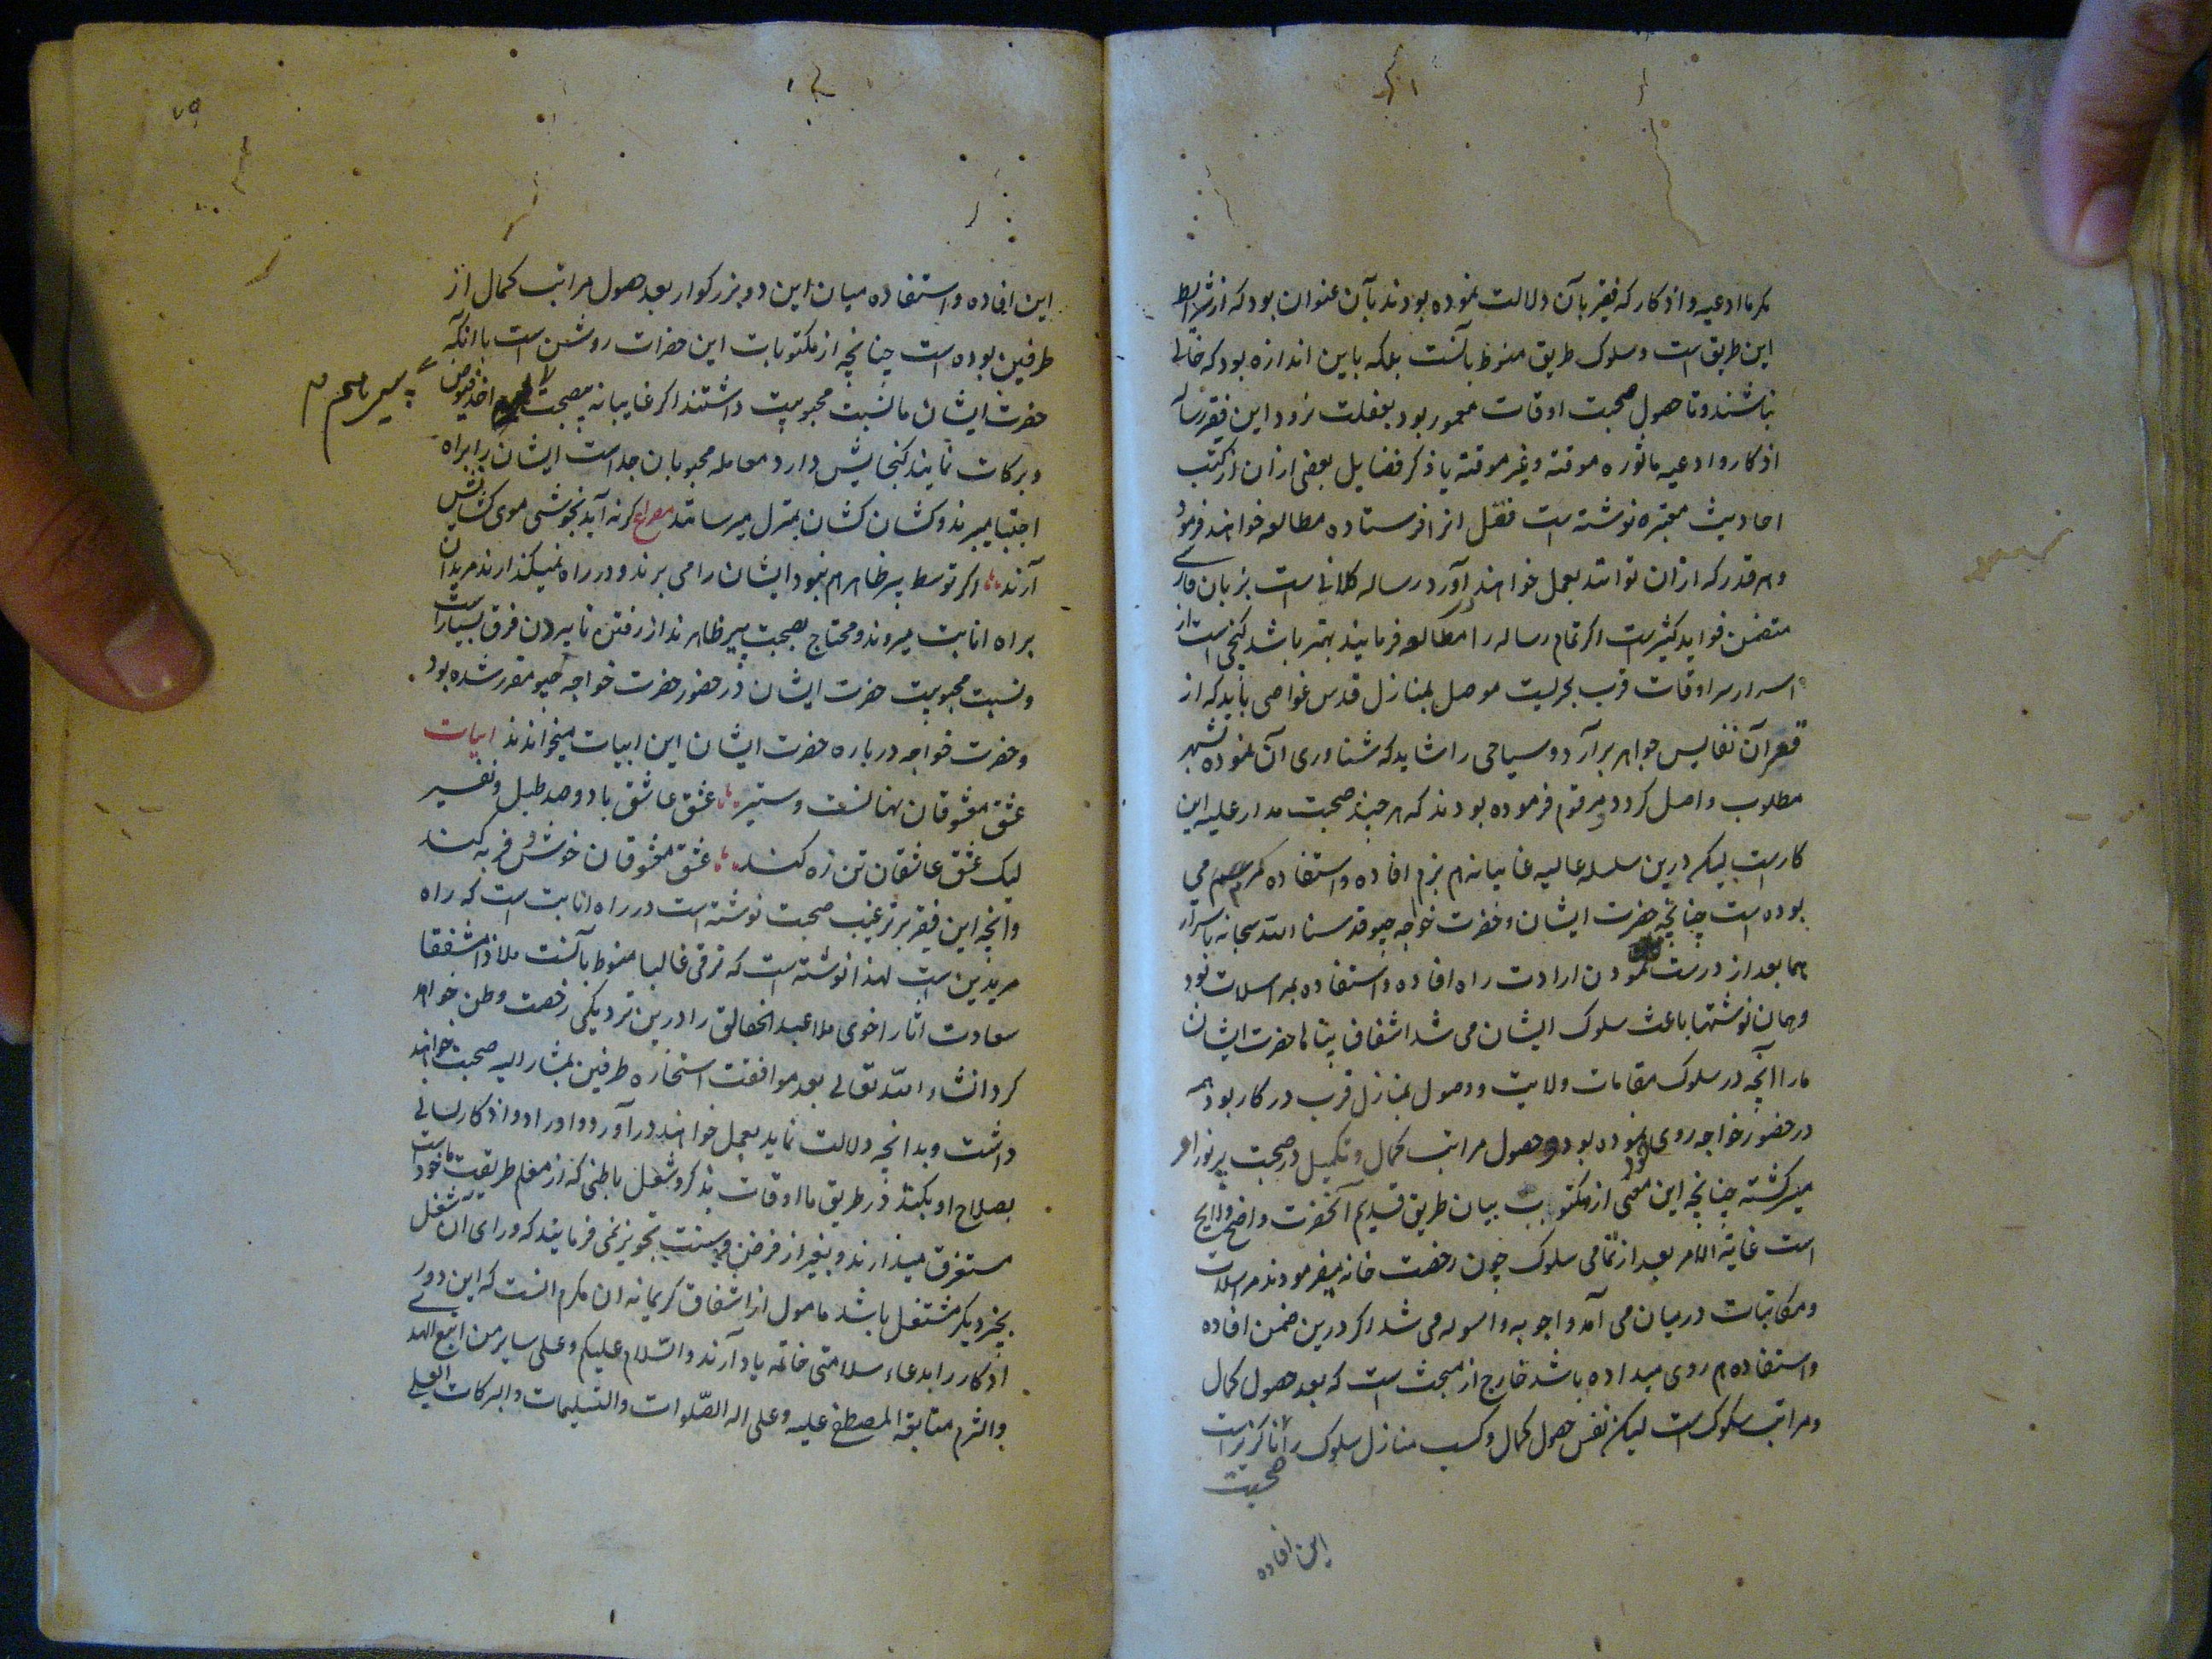 مکرما ادعیه و اذکار که فقیر بآن دلالت نموده بودند بآن عنوان بود که از شرایط
این طریق است و سلوک طریق منوط بآنست بلکه باین اندازه بود که خالی
نباشند و تا حصول صحبت اوقات معمور بود بغفلت نرود این فقیر رساله
اذکار و ادعیه ماثوره موقته و غیر موقته با ذکر فضایل بعضی ازان از کتب
احادیث معتبره نوشته است نقل انرا فرستاده مطالعه خواهند فرمود
و هر قدر که ازان توانند بعمل خواهند آورد رساله کلانی است بزبان فارسی
متضمن فواید کثیر است اکر تمام رساله را مطالعه فرمایند بهتر باشد کنجی است از
اسرار سراوقات قرب بحریست موصل بمنازل قدس غواصی باید که از
قعر آن نفایس جواهر برآرد و سیاحی را شاید که شناوری آن نموده بشهر
مطلوب واصل کردد مرقوم فرموده بودند که هر چند صحبت مدار علیه این
کار است لیکن درین سلسله عالیه غایبانه هم بزم افاده و استفاده کرم می
بوده است چنانچه حضرت ایشان و حضرت خواجه جیو قدسنا الله سبحانه باسرار
هما بعد از درست نمودن ارادت راه افاده و استفاده بمراسلات بود
و همان نوشتها باعث سلوک ایشان می شد اشفاق پناها حضرت ایشان
ما را آنچه در سلوک مقامات ولایت و وصول بمنازل قرب در کار بود همه
در حضور خواجه روی نموده بود و حصول مراتب کمال و تکمیل در صحبت پر نور او
میسر کشته چنانچه این معنی از مکتوب بیان طریق قدیم آنحضرت واضح و لایح
است غایة الامر بعد از تمامی سلوک چون رخصت خانه میفرمودند مراسلات
و مکاتبات درمیان می آمد و اجوبه و اسوله می شد اکر درین ضمن افاده
و استفاده هم روی میداده باشد خارج از مبحث است که بعد حصول کمال
و مراتب سلوک است لیکن نفس حصول کمال و کسب منازل سلوک را ناکزیر است
صحبت
این افاده
۷۹
این افاده و استفاده میان این دو بزرکوار بعد حصول مراتب کمال از
طرفین بوده است چنانچه از مکتوبات این حضرات روشن است باانکه
حضرت ایشان ما نسبت محبوبیت داشتند اکر غایبانه بصحبت اخذ فیوض
و برکات نمایند کنجایش دارد معامله محبوبان جداست ایشان را براه
اجتبا میبرند و کشان کشان بمنزل میرسانند مصراع کر نه آید بخوشی موی کشانش
آرند اکر توسط پیر ظاهر هم نبود ایشان را می برند و در راه نمیکذارند مریدان
براه انابت میروند و محتاج بصحبت پیر ظاهرند از رفتن تا بردن فرق بسیار است
و نسبت محبوبیت حضرت ایشان در حضور حضرت خواجه جیو مقرر شده بود
و حضرت خواجه درباره حضرت ایشان این ابیات میخواندند ابیات
عشق معشوقان نهانست و ستیر عشق عاشق با دو صد طبل و نفیر
لیک عشق عاشقان تن زه کند عشق معشوقان خوش و فربه کند
وانچه این فقیر بر ترغیب صحبت نوشته است در راه انابت است که راه
مریدین است لهذا نوشته است که ترقی غالبا منوط بآنست ملاذا مشفقا
سعادت اثار اخوی ملا عبد الخالق را درین نزدیکی رخصت وطن خواهد
کرد انشاء الله تعالی بعد موافقت استخاره طرفین بمشار الیه صحبت خواهند
داشت و بدانچه دلالت نماید بعمل خواهند درآورد و اوراد و اذکار لسانی
بصلاح او بکنند در طریق ما اوقات بذکر و شغل باطنی که از معلم طریقت ماخوذ است
مستغرق میدارند و بغیر از فرض و سنت تجویز نمی فرمایند که ورای آن شغل
بچیز دیکر مشتغل باشد مامول از اشفاق کریمانه ان مکرم انست که این دور
اذکار را بدعاء سلامتی خاتمه یاد آرند والسلام علیکم و علی سایر من اتبع الهدی
والتزم متابعة المصطفی علیه و علی اله الصلوات والتسلیمات والبرکات العلی